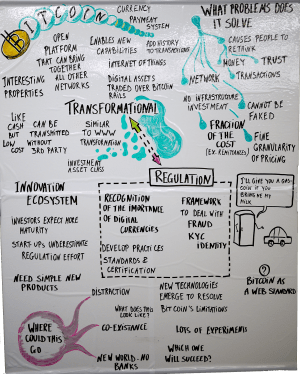 BITCOIN
CURRENCY
PAYMENT
SYSTEM
OPEN
PLATFORM
THAT CAN BRING
TOGETHER
ALL OTHER
NETWORKS
ENABLES NEW
CAPABILITIES
ADD HISTORY
TO TRANSACTIONS
INTERNET OF THINGS
DIGITAL ASSETS
TRADED OVER BITCOIN
RAILS
INTERESTING
PROPERTIES
LIKE
CASH
BUT
LOW
CAN BE
TRANSMITTED
WITHOUT
3RD PARTY
COST
TRANSFORMATIONAL
SIMILAR
TO WWW
TRANSFORMATION
INVESTMENT
ASSET CLASS
WHAT PROBLEMS DOES
IT SOLVE
CAUSES PEOPLE TO
RETHINK
MONEY
TRUST
NETWORK
TRANSACTIONS
NO INFRASTRUCTURE
INVESTMENT
CANNOT BE
FAKED
FRACTION
OF THE
COST
(EX. REMITTANCES)
FINE
GRANULARITY
OF PRICING
REGULATION
RECOGNITION
OF THE IMPORTANCE
OF DIGITAL
CURRENCIES
DEVELOP PRACTICES
STANDARDS &
CERTIFICATION
FRAMEWORK
TO DEAL WITH
FRAUD
KYC
IDENTITY
INNOVATION
ECOSYSTEM
INVESTORS EXPECT MORE
MATURITY
START-UPS UNDERESTIMATE
REGULATION EFFORT
NEED SIMPLE NEW
PRODUCTS
I'LL GIVE YOU A
COIN IF YOU
BRING ME MY
MILK
?
BITCOIN AS
A WEB STANDARD
DISTRACTION
NEW TECHNOLOGIES
EMERGE TO RESOLVE
BITCOIN'S LIMITATIONS
WHAT DOES THIS
LOOK LIKE?
CO-EXISTANCE
LOTS OF EXPERIMENTS
WHERE
COULD THIS
GO
NEW WORLD-NO
BANKS
WHICH ONE
WILL SUCCEED?